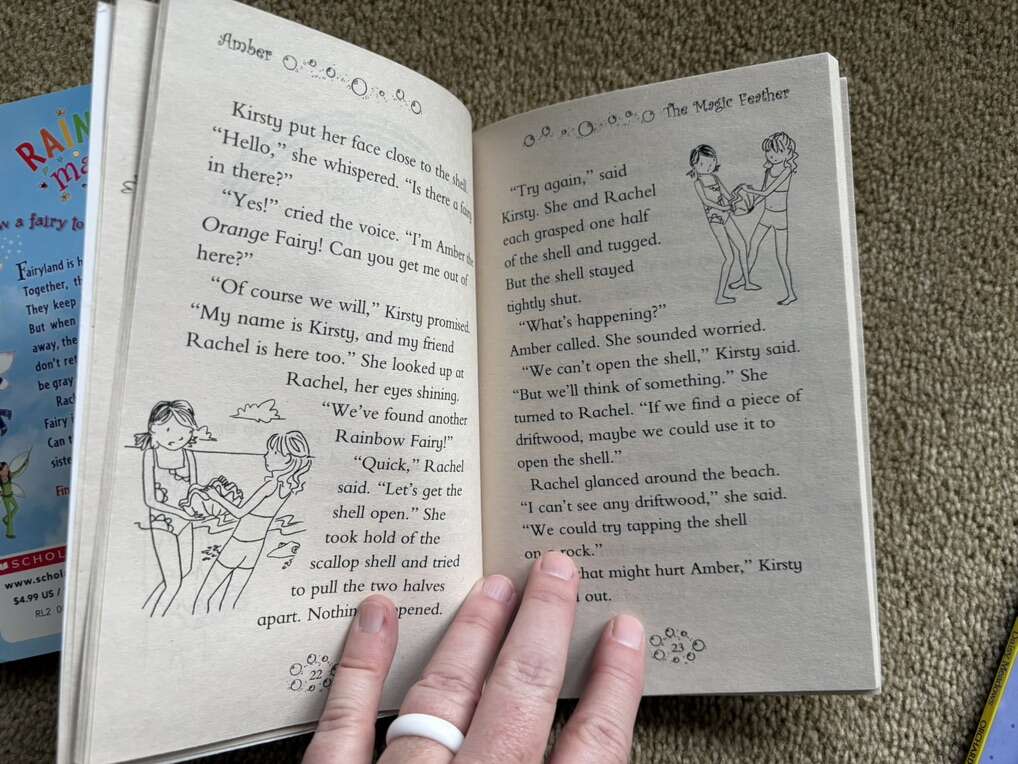 Amber
Kirsty put her face close to the shell.
“Hello,” she whispered. “Is there a fairy
in there?”
“Yes!” cried the voice. “I’m Amber the
Orange Fairy! Can you get me out of
here?”
“Of course we will,” Kirsty promised.
“My name is Kirsty, and my friend
Rachel is here too.” She looked up at
Rachel, her eyes shining.
“We’ve found another
Rainbow Fairy!”
“Quick,” Rachel
said. “Let’s get the
shell open.” She
took hold of the
scallop shell and tried
to pull the two halves
apart. Nothin pened.
22
The Magic Feather
“Try again,” said
Kirsty. She and Rachel
each grasped one half
of the shell and tugged.
But the shell stayed
tightly shut.
“What’s happening?”
Amber called. She sounded worried.
“We can’t open the shell,” Kirsty said.
“But we’ll think of something.” She
turned to Rachel. “If we find a piece of
driftwood, maybe we could use it to
open the shell.”
Rachel glanced around the beach.
“I can’t see any driftwood,” she said.
“We could try tapping the shell
on a rock.”
hat might hurt Amber,” Kirsty
out.
23
RAIN
ma
w a fairy to
Fairyland is h
Together, th
They keep
But when
away, the
don’t ret
be gray
Rac
Fairy i
Can t
siste
Fin
SCHOL
www.schol
$4.99 US /
RL2